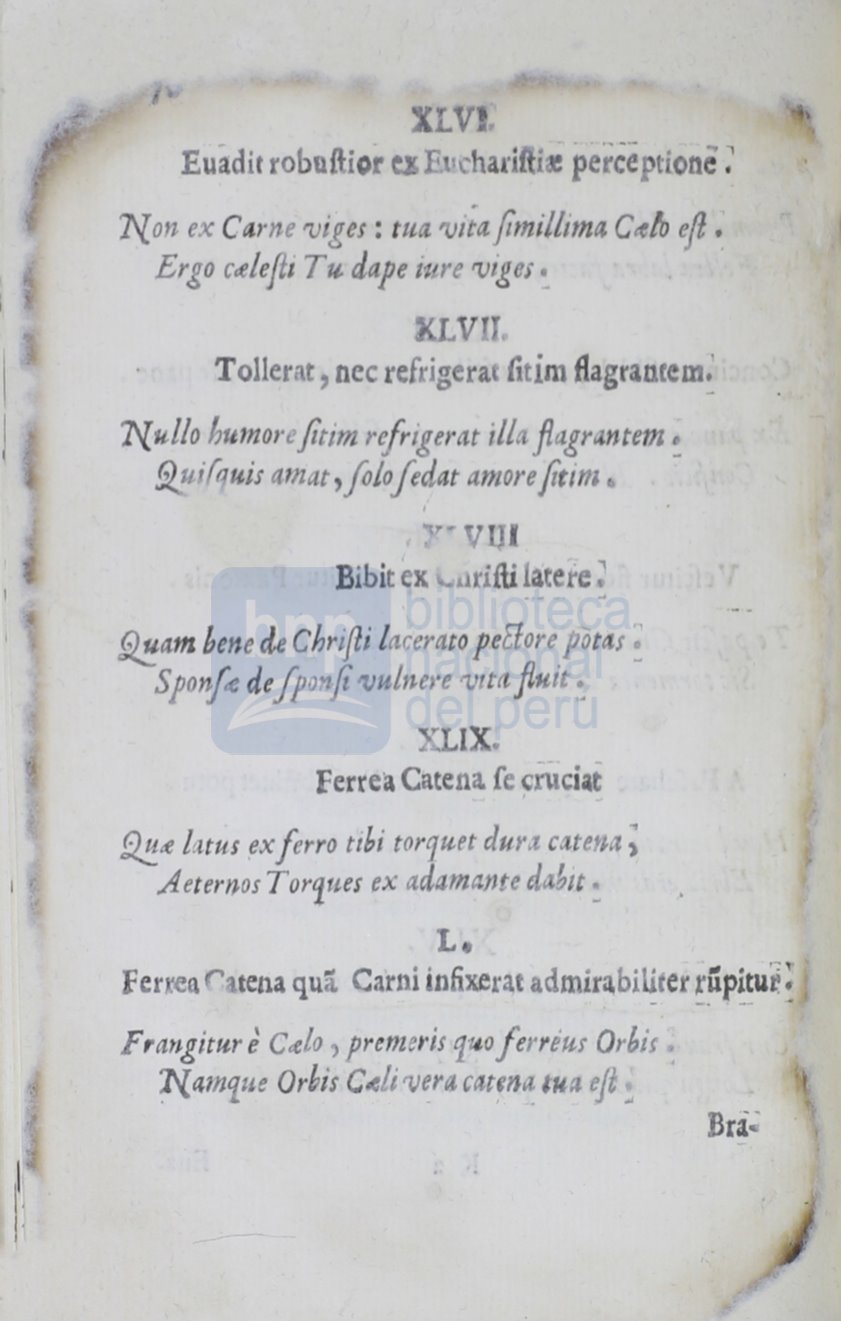 XLVI.
Euadit robuſtior ex Euchariſtiæ perceptionē.
Non ex Carne viges : tua vita ſimillima Cælo eſt .
Ergo cæleſti Tu dape iure viges.
XLVII.
Tollerat, nec refrigerat ſitim flagrantem.
Nullo humore ſitim refrigerat illa flagrantem .
Quiſquis amat, ſolo ſedat amore ſitim .
XLVIII
Bibit ex Chriſti latere.
Quam bene de Chriſti lacerato pectore potas .
Sponſæ de ſponſi vulnere vita fluit .
XLIX.
Ferrea Catena ſe cruciat
Quæ latus ex ferro tibi torquet dura catena ,
Aeternos Torques ex adamante dabit .
L.
Ferrea Catena quā Carni infixerat admirabiliter rūpitur.
Frangitur è Cælo , premeris quo ferreus Orbis .
Namque Orbis Cæli vera catena tua eſt .
Bra-
bnp
biblioteca
nacional
del perú